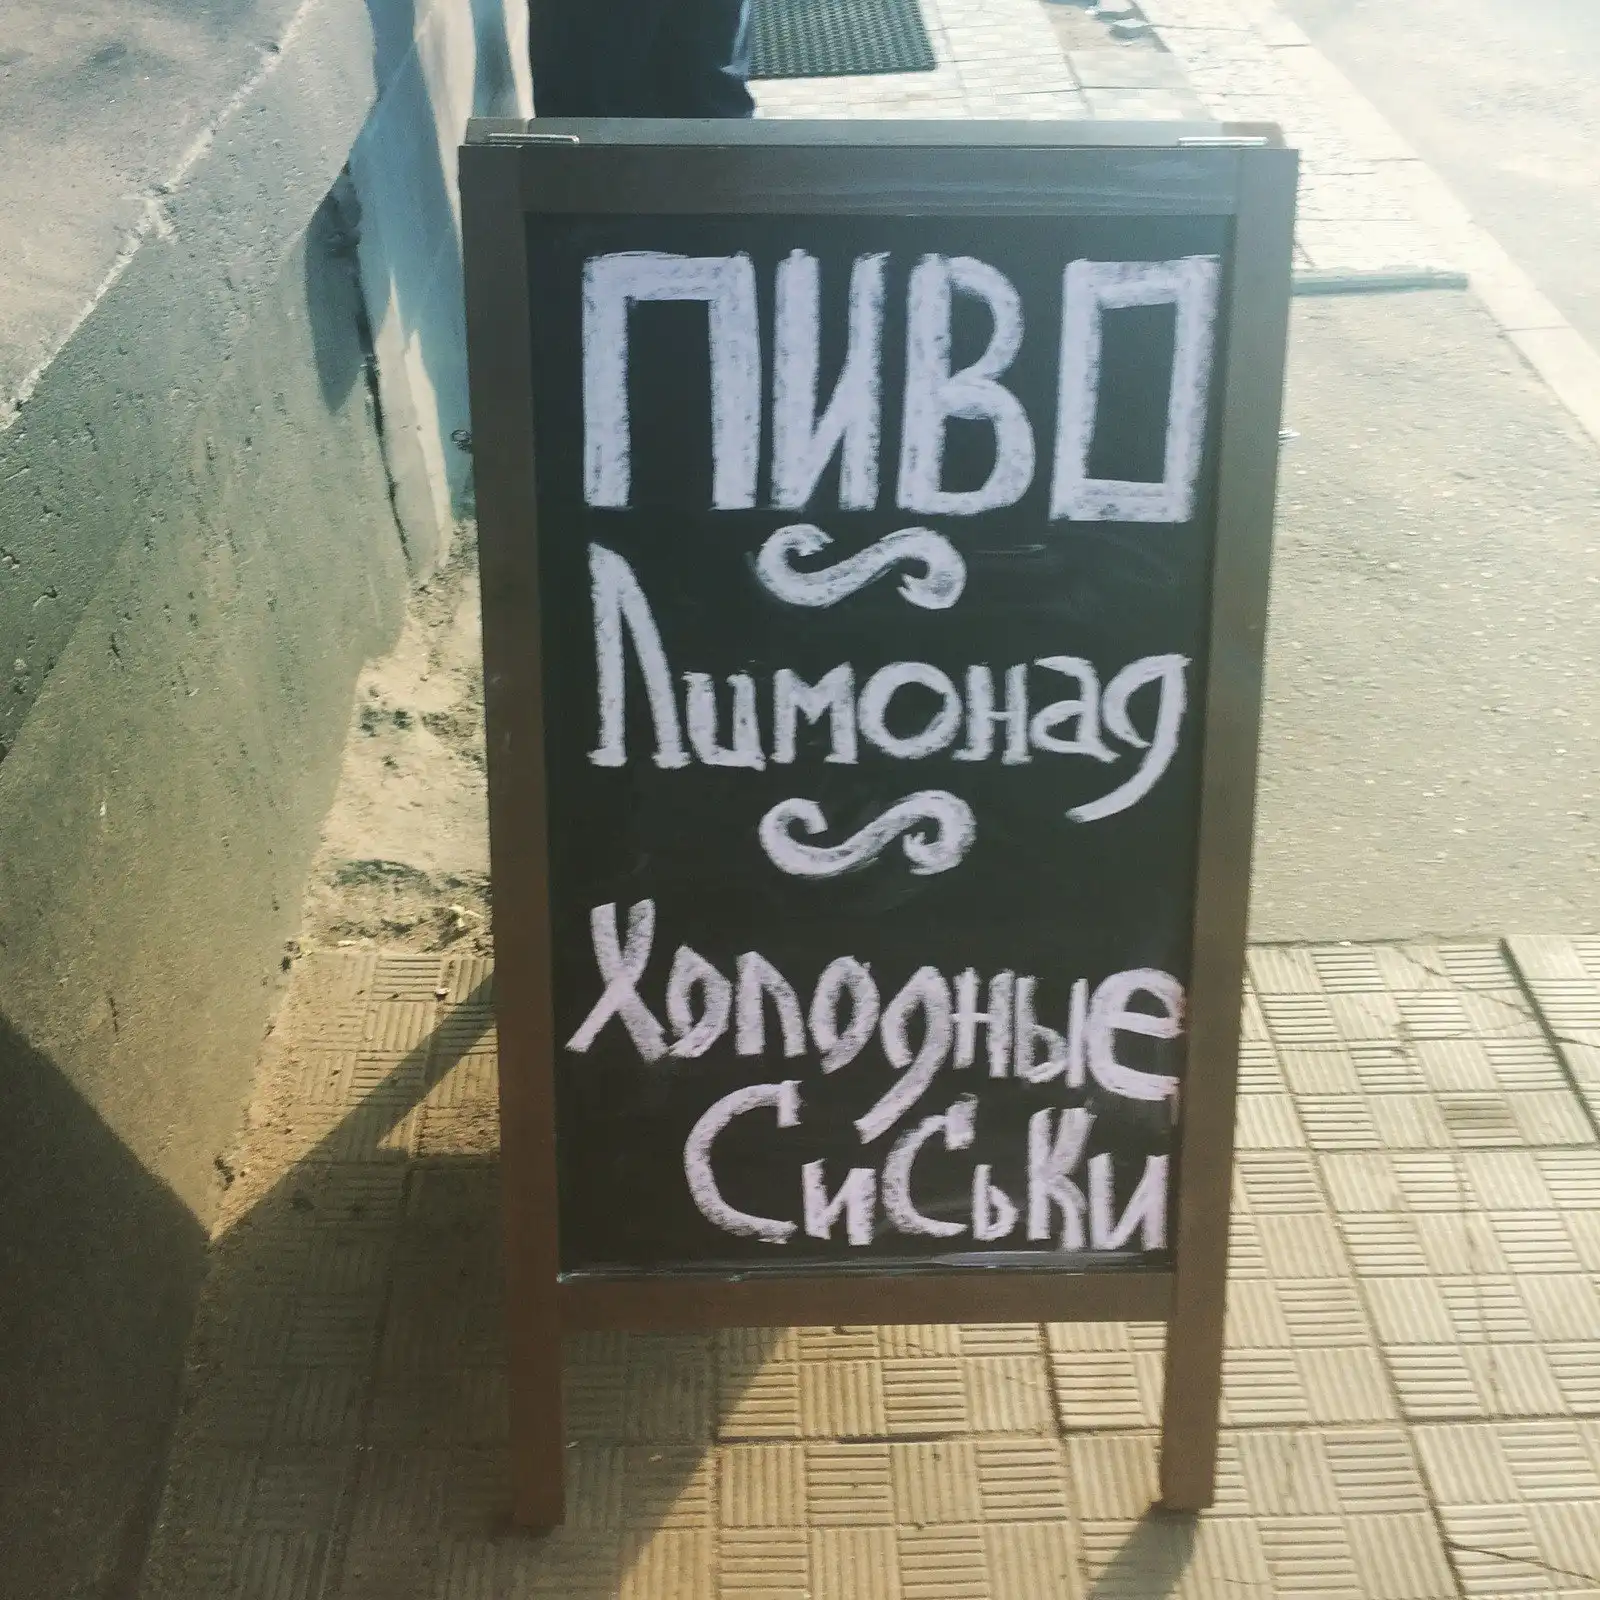 ПИВО
Лимонад
Холодные
СиСьКи